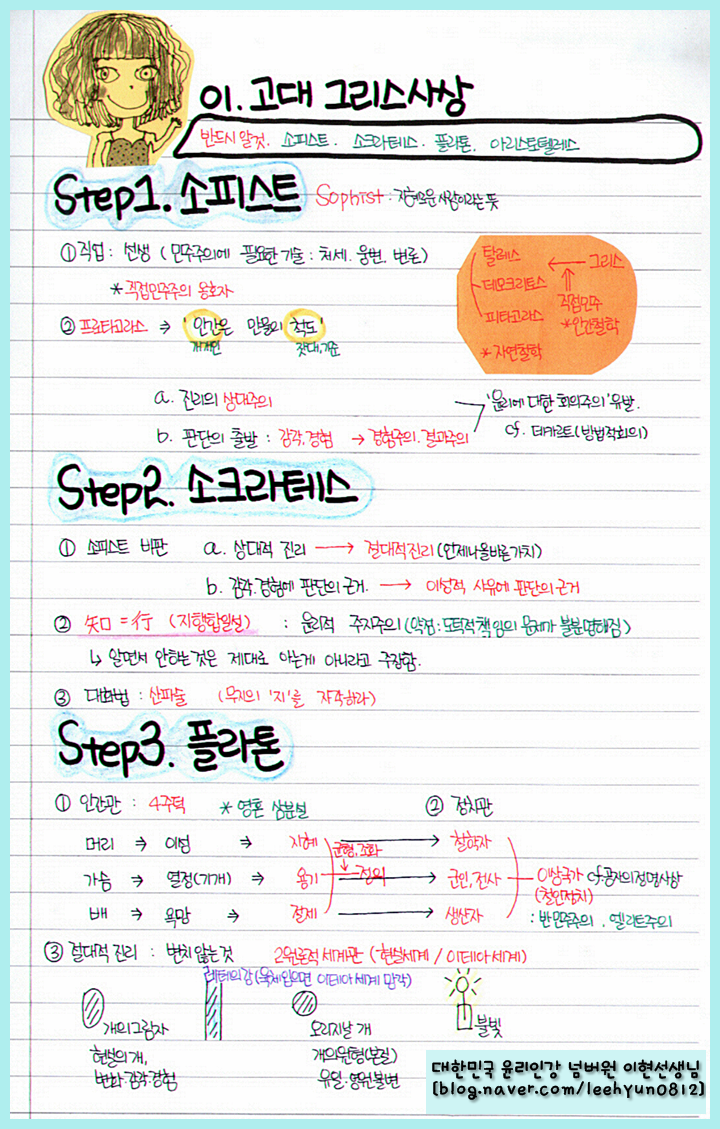 01. 고대 그리스사상
반드시 알것. 소피스트. 소크라테스. 플라톤. 아리스토텔레스
Step1. 소피스트 Sophist : 지혜로운 사람이라는 뜻
① 직업 : 선생 ( 민주주의에 필요한 기술 : 처세. 웅변. 변론)
* 직접민주주의 옹호자
② 프로타고라스 ⇒ '인간은 만물의 척도'
개개인 잣대, 기준
탈레스 ← 그리스
데모크리토스
피타고라스
* 자연철학
직접민주
* 인간철학
a. 진리의 상대주의
b. 판단의 출발 : 감각. 경험 → 경험주의. 결과주의
'윤리에 대한 회의주의' 유발.
cf. 데카르트(방법적회의)
Step2. 소크라테스
① 소피스트 비판 a. 상대적 진리 → 절대적진리 (언제나올바른가치)
b. 감각. 경험에 판단의 근거. → 이성적 사유에 판단의 근거
② 知 = 行 (지행합일설) : 윤리적 주지주의 (약점 : 도덕적책임의 문제가 불분명해짐)
↳ 알면서 안하는 것은 제대로 아는게 아니라고 주장함.
③ 대화법 : 산파술 (무지의 '지'를 자각하라)
Step3. 플라톤
① 인간관 : 4주덕 * 영혼 삼분설 ② 정치관
머리 → 이성 → 지혜 → 철학자
균형, 조화
가슴 → 열정(기개) → 용기 정의 → 군인, 전사 이상국가 cf 공자의 정명사상
(철인정치)
배 → 욕망 → 절제 → 생산자 : 반민주주의, 엘리트주의
③ 절대적 진리 : 변치 않는 것 2원론적 세계관 (현실세계 / 이데아 세계)
레테의강 (육체입으면 이데아 세계 망각)
개의 그림자 오리지날 개 불빛
현실의 개, 개의 원형(본질)
변화. 감각. 경험 유일. 영원불변
대한민국 윤리인강 넘버원 이현선생님
[blog.naver.com/leehyun0812]